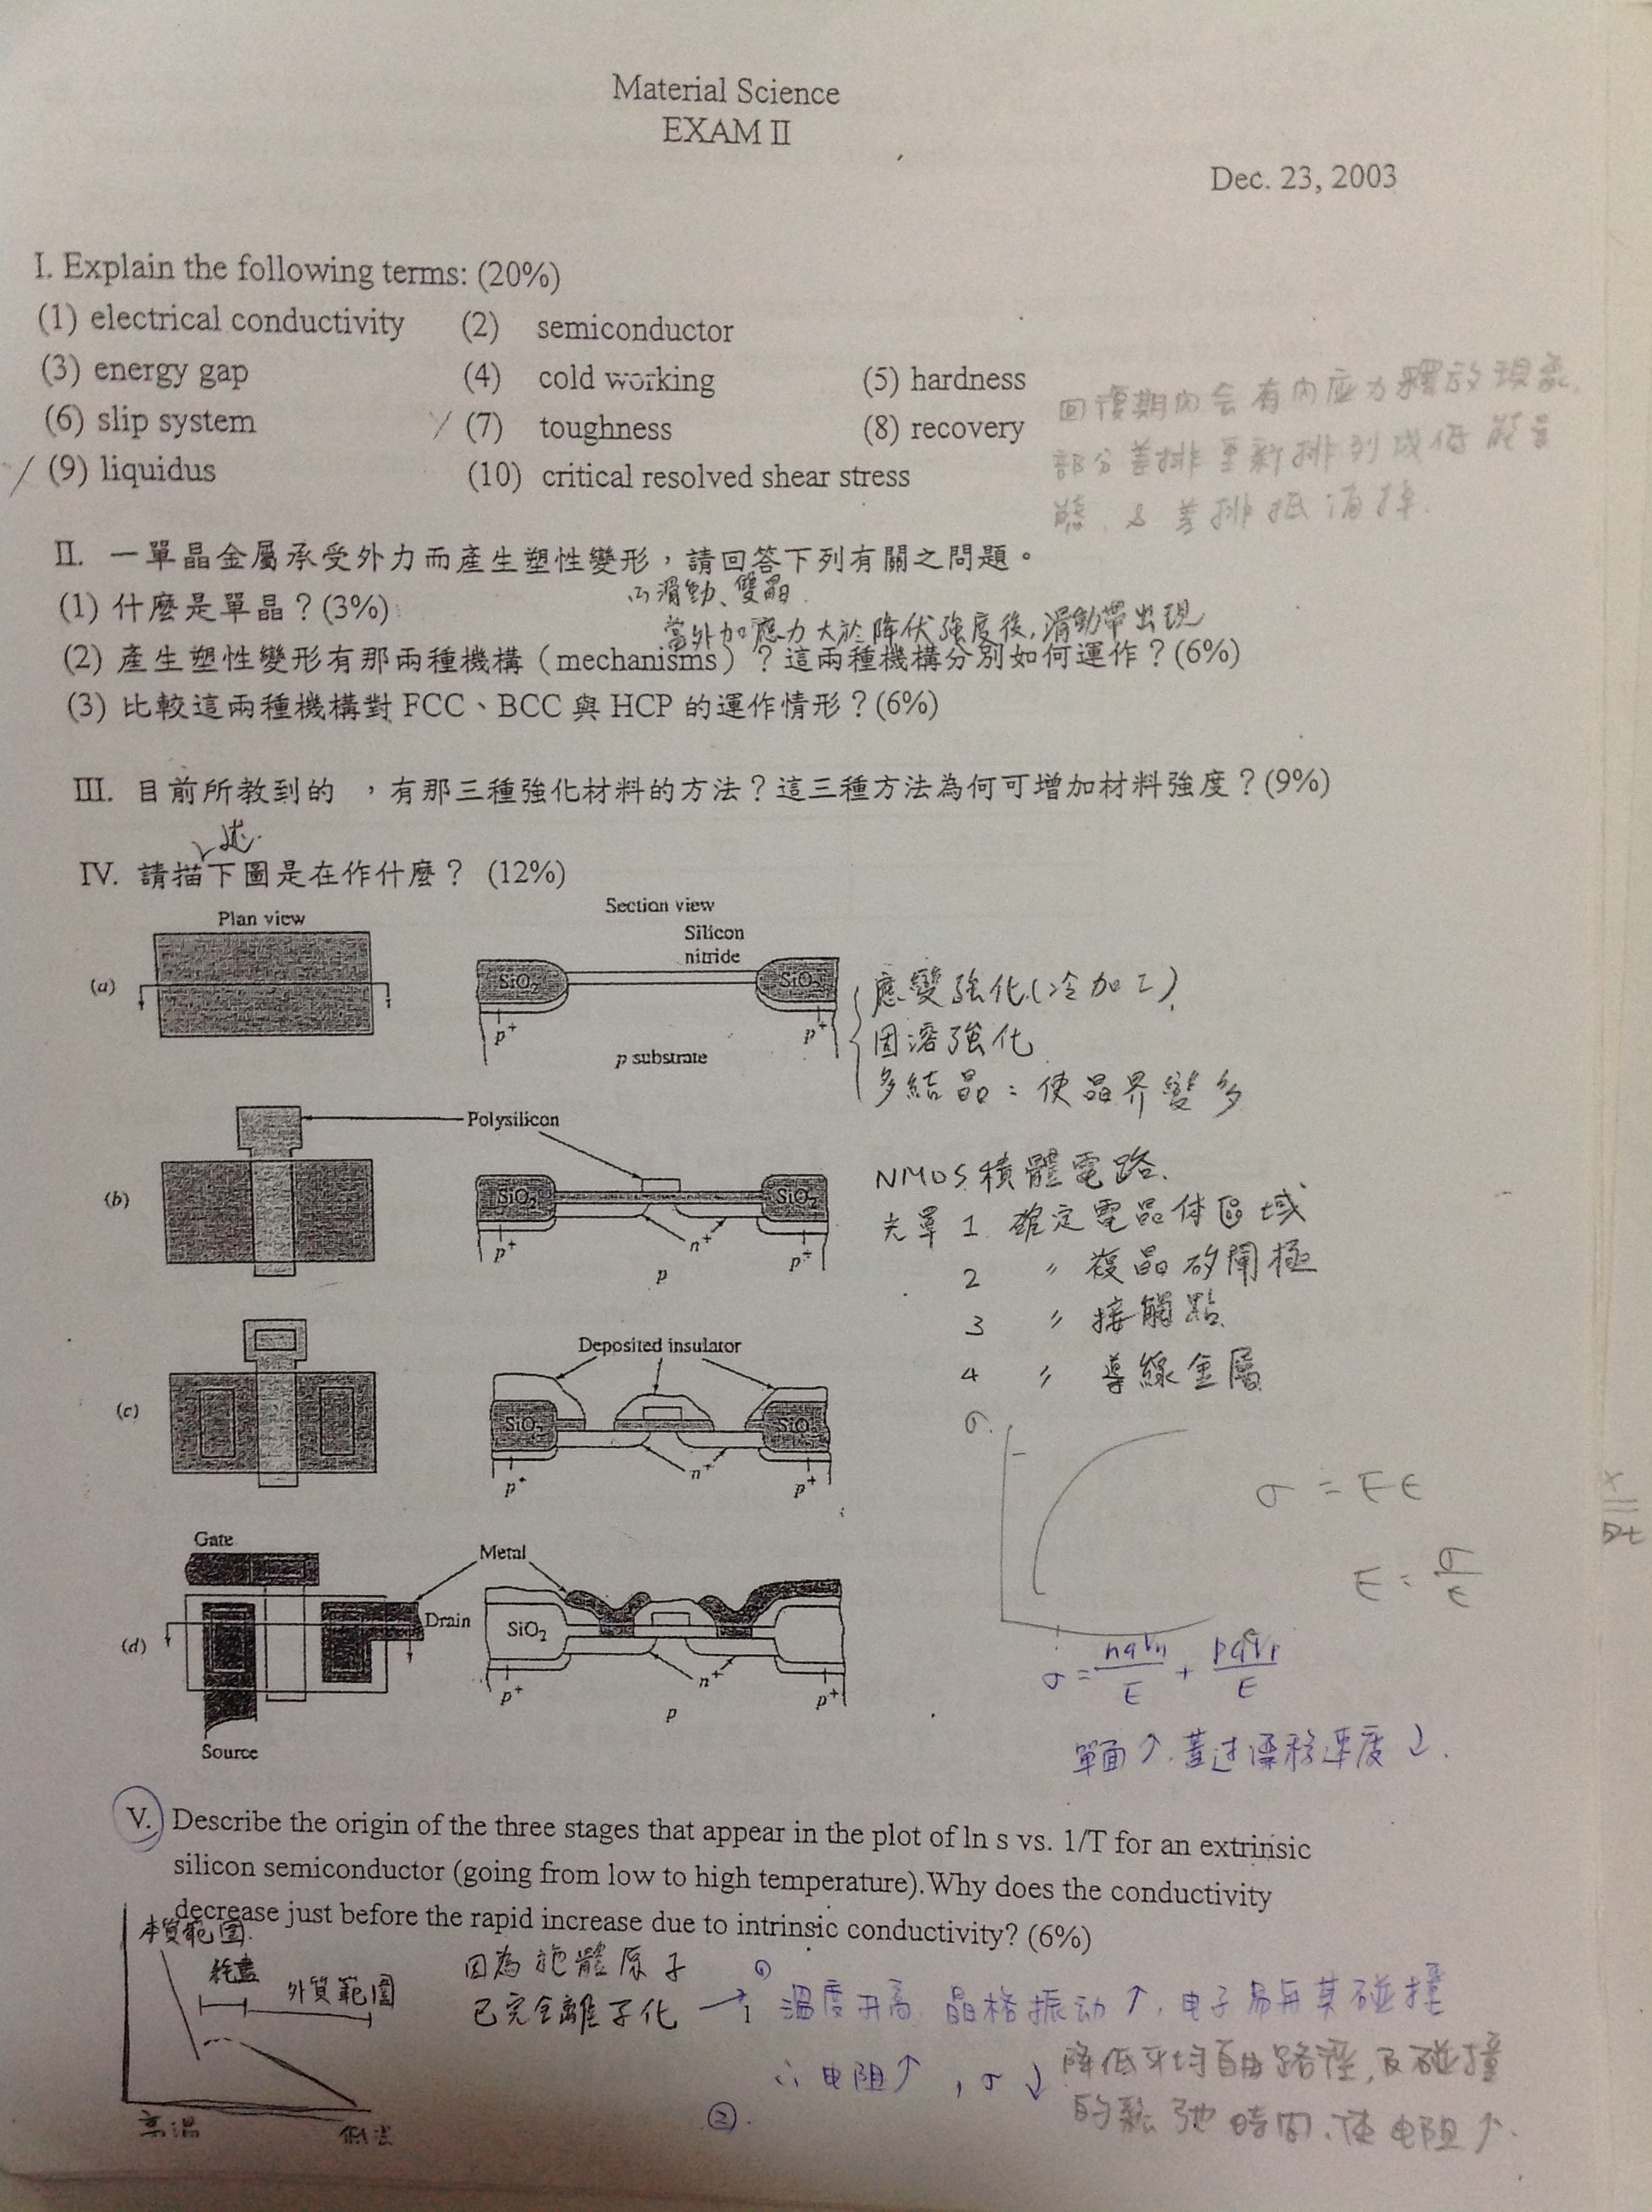 Material Science
EXAM II
Dec. 23, 2003
I. Explain the following terms: (20%)
(1) electrical conductivity (2) semiconductor
(3) energy gap (4) cold working (5) hardness
(6) slip system (7) toughness (8) recovery
(9) liquidus (10) critical resolved shear stress
回復期內会有內应力釋放現象,
部分差排重新排列成低能量
態,&差排抵消掉.
II. 一單晶金屬承受外力而產生塑性變形,請回答下列有關之問題。
滑動、雙晶
(1) 什麼是單晶?(3%)
當外加應力大於降伏強度後,滑動帶出現
(2) 產生塑性變形有那兩種機構(mechanisms)?這兩種機構分別如何運作?(6%)
(3) 比較這兩種機構對 FCC、BCC 與 HCP 的運作情形?(6%)
III. 目前所教到的 ,有那三種強化材料的方法?這三種方法為何可增加材料強度?(9%)
述
IV. 請描下圖是在作什麼? (12%)
Plan view Section view
Silicon
nitride
(a) SiO₂ SiO₂
p⁺ p⁺
p substrate
應變強化(冷加工)
固溶強化
多結晶:使晶界變多
Polysilicon
(b) SiO₂ SiO₂
p⁺ n⁺ p⁺
p
NMOS積體電路.
光罩1 確定電晶体區域
2 〃 複晶矽閘極
3 〃 接觸點
4 〃 導線金屬
Deposited insulator
(c) SiO₂ SiO
p⁺ n⁺ p⁺
σ
σ = Eε
E = σ/ε
Gate Metal
Drain
(d) SiO₂
p⁺ n⁺ p⁺
p
Source
σ = nqVn/E + pqVp/E
單面↑.蓋过漂移速度↓.
V. Describe the origin of the three stages that appear in the plot of ln s vs. 1/T for an extrinsic
silicon semiconductor (going from low to high temperature).Why does the conductivity
decrease just before the rapid increase due to intrinsic conductivity? (6%)
本質範圍.
耗盡
外質範圍
高温 低温
因為施體原子
已完全離子化 →
① 温度升高 晶格振动↑,电子易与其碰撞
∴电阻↑,σ↓
降低平均自由路徑,及碰撞
的鬆弛時間,使电阻↑.
②.